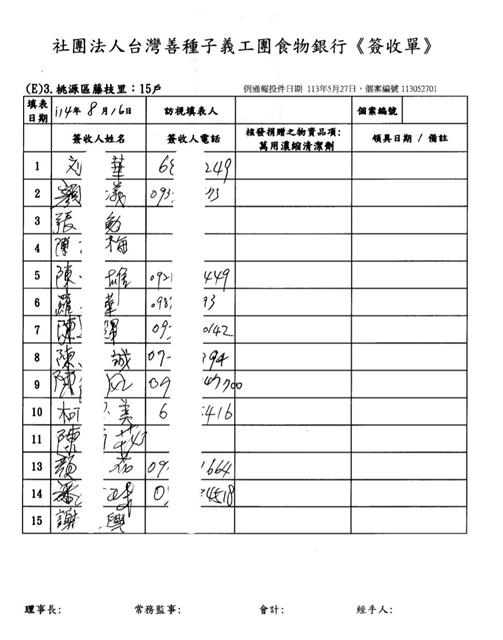 社團法人台灣善種子義工團食物銀行《簽收單》
(E)3.桃源區藤枝里：15戶 例通報投件日期 113年5月27日，個案編號113052701
填表日期 114年8月16日 訪視填表人 個案編號
簽收人姓名 簽收人電話 核發捐贈之物資品項: 萬用濃縮清潔劑 領具日期 / 備註
1 刘 華 68 249
2 顏 義 093 73
3 張 勳
4 陳 梅
5 陳 雄 0921 449
6 羅 華 098 93
7 陳 輝 09 0142
8 陳 誠 09 394
9 陳 09
10 柯 美 6 416
11 陳
13 顏 茹 09 1664
14 潘 0 4518
15 謝 興
理事長: 常務監事: 會計: 經手人: